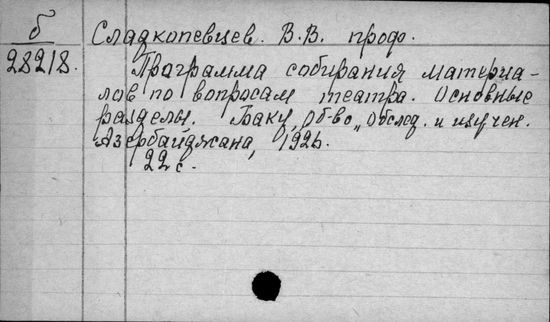 б
28218.
Сладкопевцев. В.В. проф.
Программа собирания материа-
лов по вопросам театра. Основные
разделы. Баку, Об-во „Обслед. и изучен.
Азербайджана, 1926.
22 с.